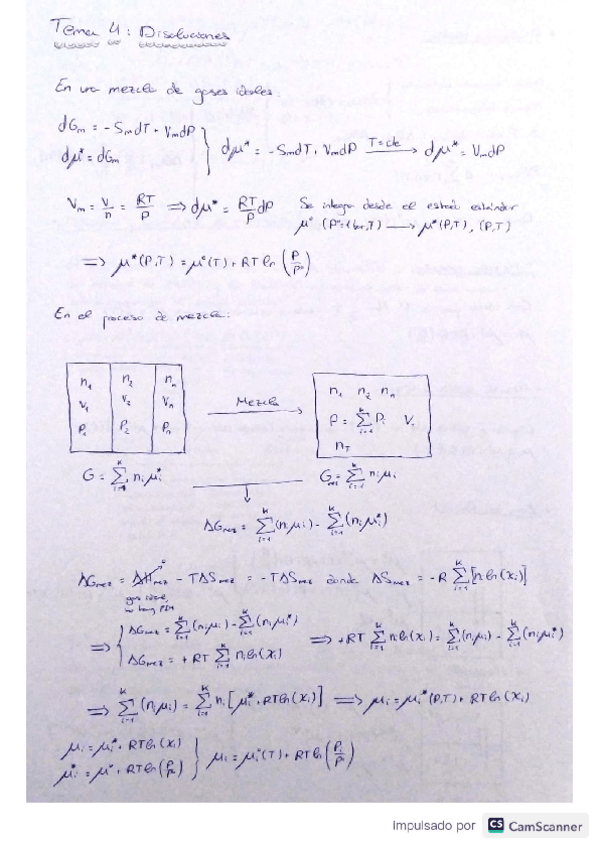 Tema 4: Disoluciones
En una mezcla de gases ideales:
dGm = -SmdT + VmdP
dμ* = dGm } dμ* = -SmdT + VmdP T=cte → dμ* = VmdP
Vm = V/n = RT/P ⇒ dμ* = RT/P dP Se integra desde el estado estándar
μ° (P°=1bar,T) → μ*(P,T), (P,T)
⇒ μ*(P,T) = μ°(T) + RT ln (P/P°)
En el proceso de mezcla:
n1 n2 nn
V1 V2 Vn
P1 P2 Pn
Mezcla
n1 n2 nn
P = Σ(i=1,k) Pi V
nT
G = Σ(i=1,k) niμi* G = Σ(i=1,k) niμi
ΔGmez = Σ(i=1,k)(niμi) - Σ(i=1,k)(niμi*)
ΔGmez = ΔHmez - TΔSmez = -TΔSmez donde ΔSmez = -R Σ(i=1,k)[ni ln(xi)]
0
gas ideal,
no hay
⇒ { ΔGmez = Σ(i=1,k)(niμi) - Σ(i=1,k)(niμi*)
ΔGmez = +RT Σ(i=1,k) ni ln(xi) ⇒ +RT Σ(i=1,k) ni ln(xi) = Σ(i=1,k)(niμi) - Σ(i=1,k)(niμi*)
⇒ Σ(i=1,k)(niμi) = Σ(i=1,k) ni [μi* + RT ln(xi)] ⇒ μi = μi*(P,T) + RT ln(xi)
μi = μi* + RT ln(xi)
μi* = μ° + RT ln(P/P°) } μi = μi°(T) + RT ln(Pi/P°)
Impulsado por CS CamScanner